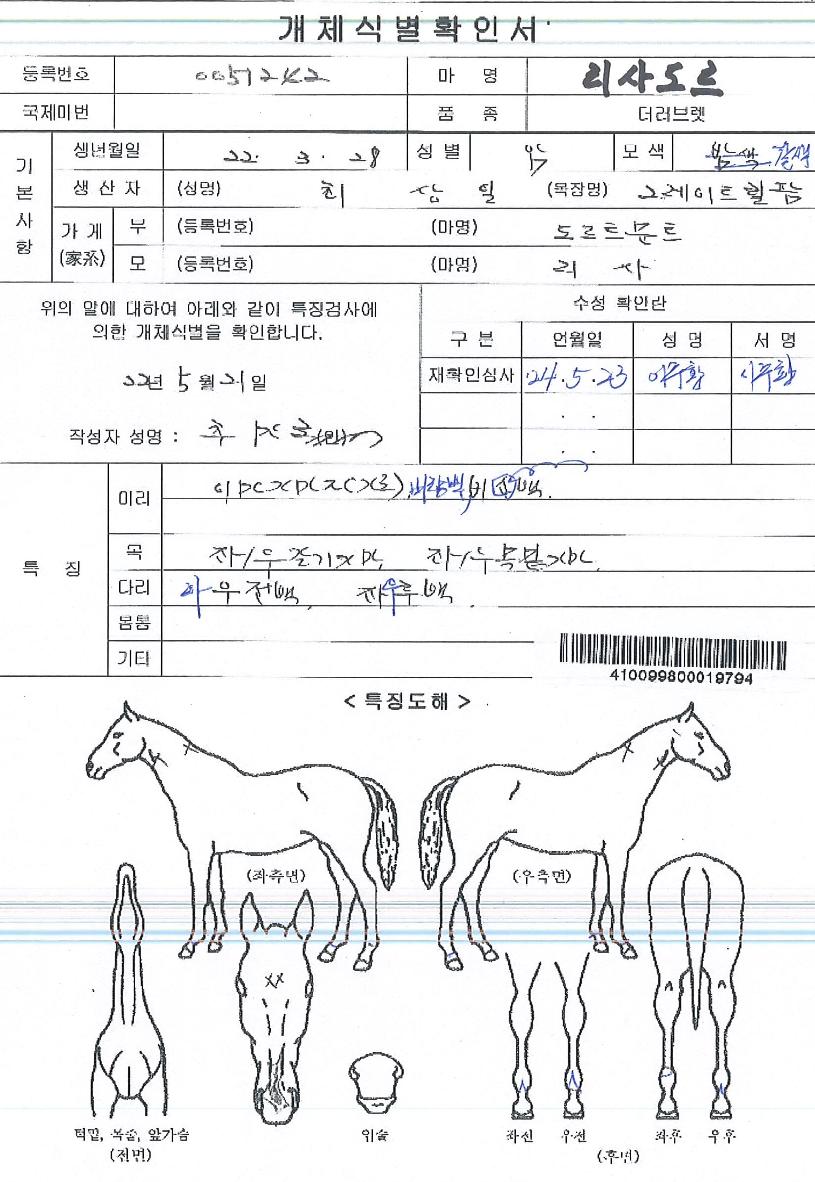 개체식별확인서
등록번호 0051242 마 명 리사도르
국제마번 품 종 더러브렛
기본사항 생년월일 22. 3. 28 성별 암 모색 밤색 갈색
생산자 (성명) 최 삼 일 (목장명) 그레이트웰팜
가계(家系) 부 (등록번호) (마명) 도르트문트
모 (등록번호) (마명) 리 사
위의 말에 대하여 아래와 같이 특징검사에
의한 개체식별을 확인합니다.
22년 5월 21일
작성자 성명 :
수성 확인란
구 분 언월일 성 명 서 명
재확인심사 '24. 5. 23
특 징
머리
목 좌/우 좌/우
다리 좌 우전백
몸통
기타
410099800019794
< 특징도해 >
(좌측면) (우측면)
턱밑, 목줄, 앞가슴
(전면)
위술
좌전 우전 좌후 우후
(후면)